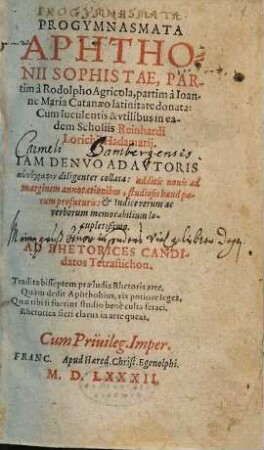 PROGYMNASMATA
PROGYMNASMATA
APHTHO-
NII SOPHISTAE, PAR-
tim à Rodolpho Agricola, partim à Ioan-
ne Maria Catanæo latinitate donata:
Cum luculentis & vtilibus in ea-
dem Scholiis Reinhardi
Lorichii Hadamarij.
Carmeli Bambergensis
IAM DENVO AD AVTORIS
diligenter collata: additis nouis ad
marginem annotationibus, studiosis haud pa-
rum profuturis: & indice rerum ac
verborum memorabilium lo-
cupletissimo.
AD RHETORICES CANDI-
datos Tetrastichon.
Tradita bis septem præludia Rhetoris arte,
Quàm dedit Aphthonius, vix potiore leges,
Quæ tibi si fuerint studio benè culta feraci,
Rhetorica fieri clarus in arte queas.
Cum Priuileg. Imper.
FRANC. Apud Hæred. Christ. Egenolphi.
M. D. LXXXII.